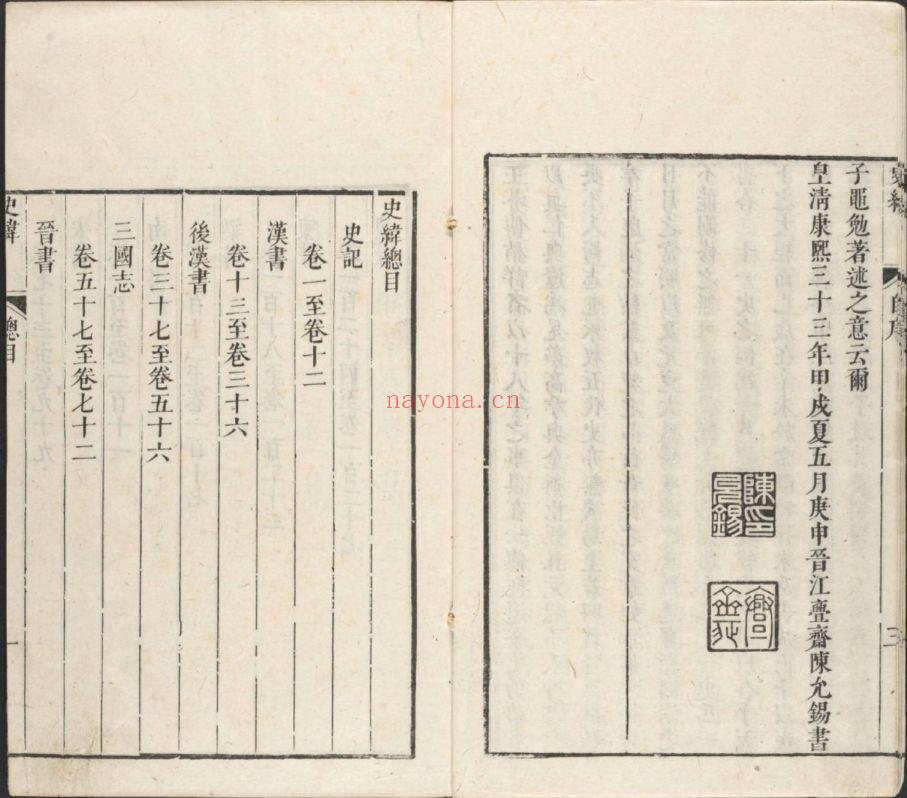 史緯
自序
三
子黽勉著述之意云爾
皇清康熙三十三年甲戌夏五月庚申晉江亹齋陳允錫書
陳印允錫
亹齋
史緯總目
史記
卷一至卷十二
漢書
卷十三至卷三十六
後漢書
卷三十七至卷五十六
三國志
卷五十七至卷七十二
晉書
史緯
總目
一
nayona.cn